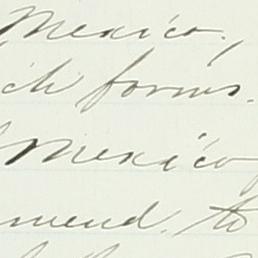 Mexico,
ch forms
Mexico
mend. to